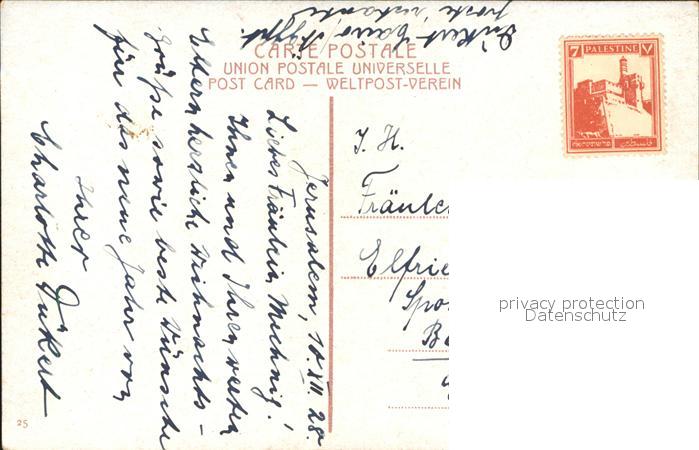 Cairo, Egypt.
poste restante
CARTE POSTALE
UNION POSTALE UNIVERSELLE
POST CARD — WELTPOST-VEREIN
7 PALESTINE ٧
פלשתינה א״י فلسطين
Jerusalem, 10.XII.28.
Liebes Fräulein Mechnig!
Ihnen und Ihren werten
Eltern herzliche Weihnachts-
Grüße sowie beste Wünsche
für das neue Jahr von
Ihrer
Charlotte Dükert
I. H.
Fräulei
Elfrie
Spo
Be
25
privacy protection
Datenschutz